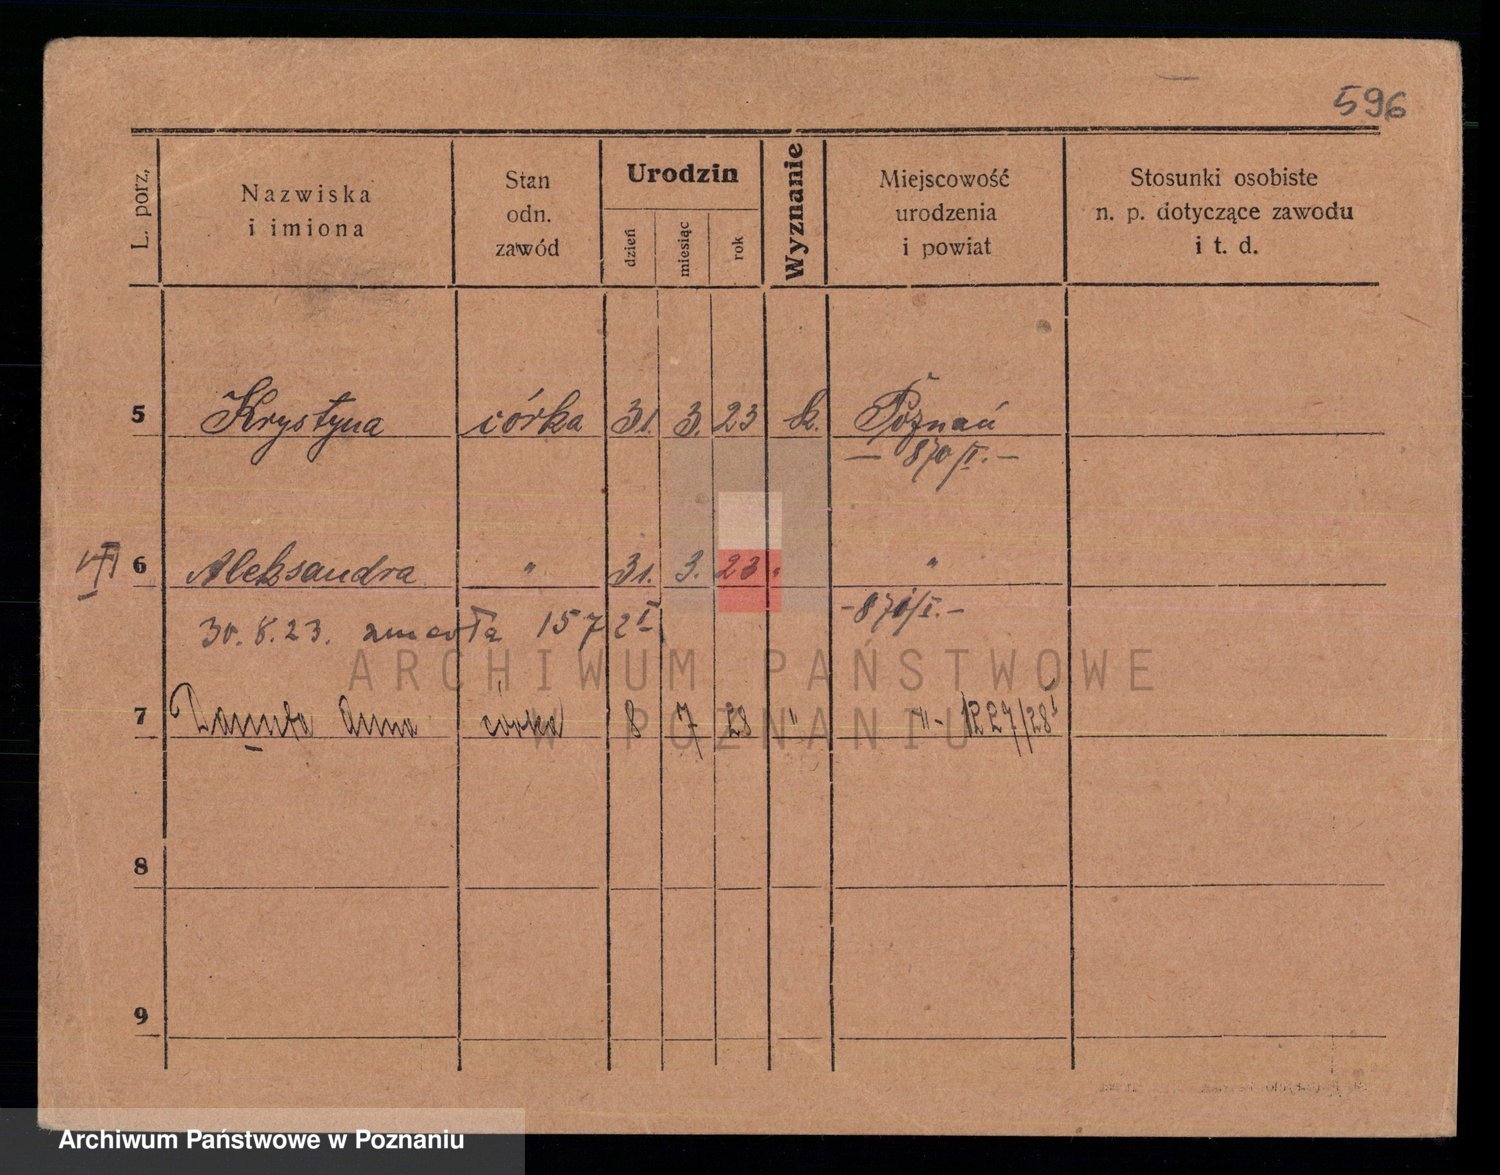 596
L. porz.
Nazwiska
i imiona
Stan
odn.
zawód
Urodzin
dzień
miesiąc
rok
Wyznanie
Miejscowość
urodzenia
i powiat
Stosunki osobiste
n. p. dotyczące zawodu
i t. d.
5 Krystyna córka 31. 3. 23 k. Poznań
— 870/I. —
6 Aleksandra " 31. 3. 23 " "
30.8.23. zmarła 1572 I -871/I.-
7 Danuta Anna córka 8 7 28 " " - 1227/28 I
8
9
ARCHIWUM PAŃSTWOWE
W POZNANIU
Archiwum Państwowe w Poznaniu